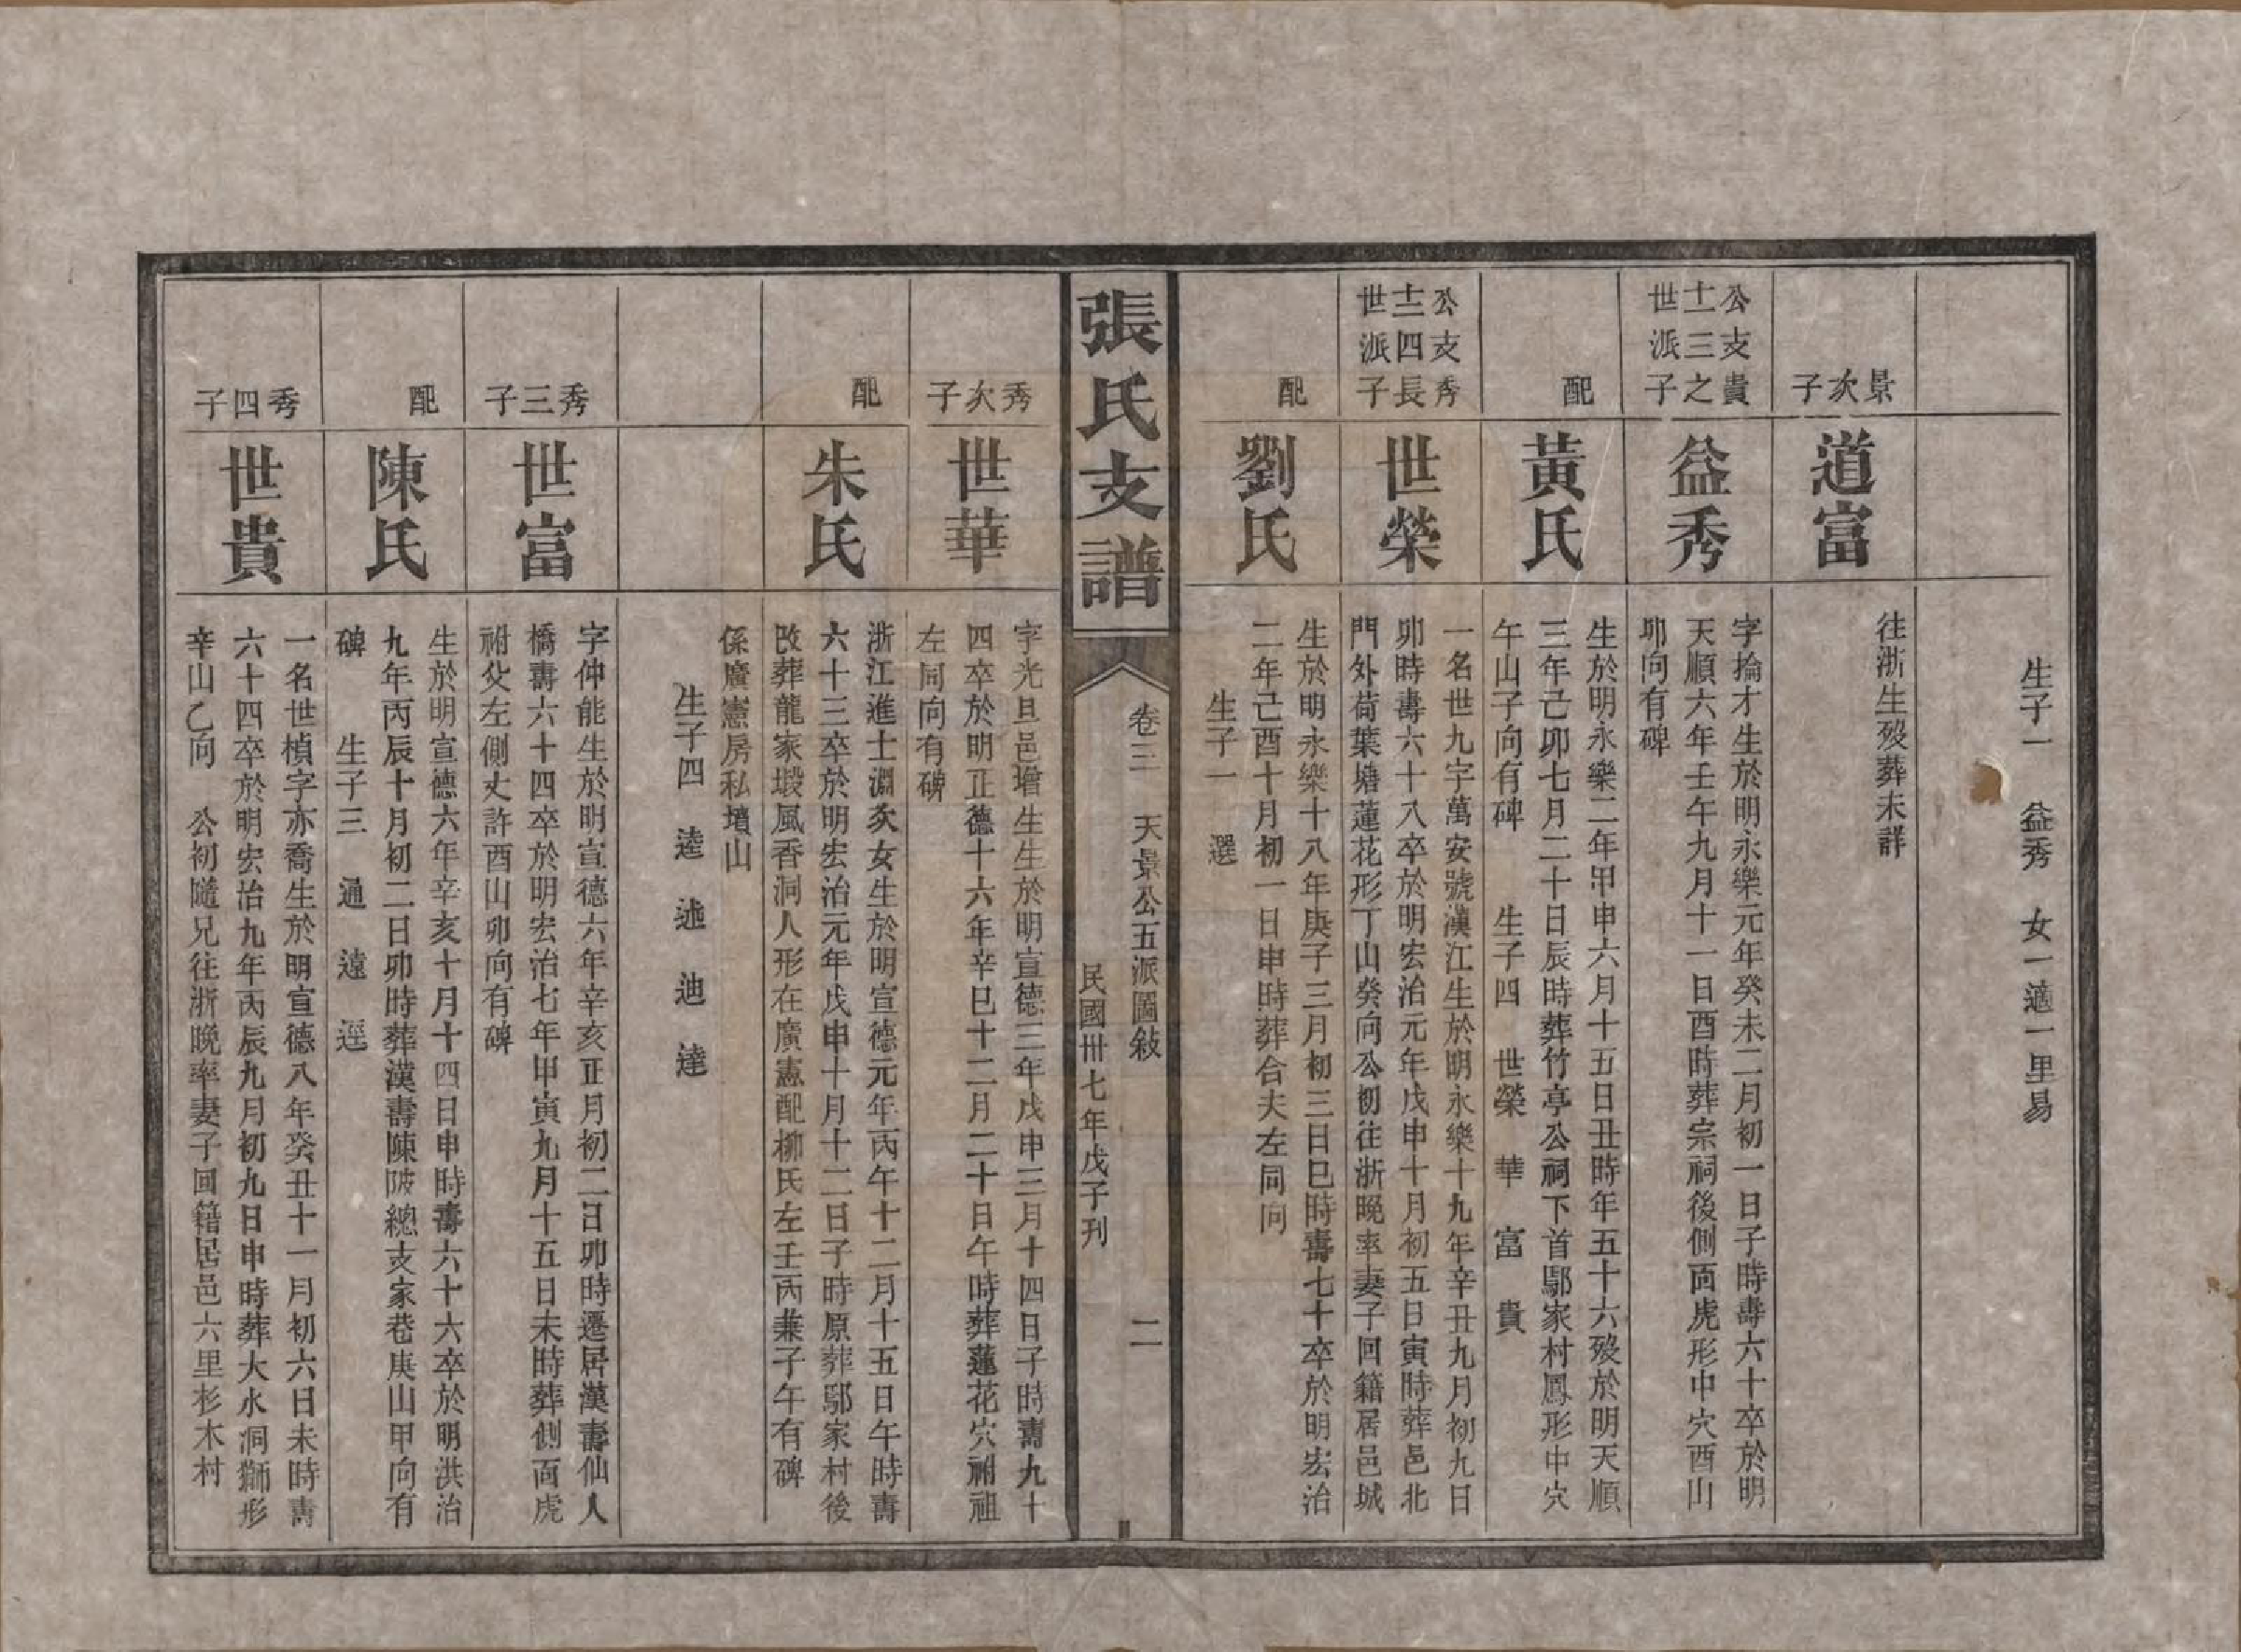 生子一　益秀　女一適一里易
景次子
道富
往浙生歿葬未詳
公支貴
十三之
世派子
益秀
字掄才生於明永樂元年癸未二月初一日子時壽六十卒於明
天順六年壬午九月十一日酉時葬宗祠後側面虎形中穴酉山
卯向有碑
配
黃氏
生於明永樂二年甲申六月十五日丑時年五十六歿於明天順
三年己卯七月二十日辰時葬竹亭公祠下首鄢家村鳳形中穴
午山子向有碑　　生子四　世榮　華　富　貴
公支秀
十四長
世派子
世榮
一名世九字萬安號漢江生於明永樂十九年辛丑九月初九日
卯時壽六十八卒於明宏治元年戊申十月初五日寅時葬邑北
門外荷葉塘蓮花形丁山癸向公初往浙晚率妻子回籍居邑城
配
劉氏
生於明永樂十八年庚子三月初三日巳時壽七十卒於明宏治
二年己酉十月初一日申時葬合夫左同向
生子一　選
張氏支譜
卷三　天景公五派圖敘　二
民國卅七年戊子刊
秀次子
世華
字光旦邑增生生於明宣德三年戊申三月十四日子時壽九十
四卒於明正德十六年辛巳十二月二十日午時葬蓮花穴祔祖
左同向有碑
配
朱氏
浙江進士淵亥女生於明宣德元年丙午十二月十五日午時壽
六十三卒於明宏治元年戊申十月十二日子時原葬鄢家村後
改葬龍家塅風香洞人形在廣憲配柳氏左壬丙兼子午有碑
係廣憲房私墳山
生子四　逵　迆　迪　達
秀三子
世富
字仲能生於明宣德六年辛亥正月初二日卯時遷居漢壽仙人
橋壽六十四卒於明宏治七年甲寅九月十五日未時葬側面虎
祔父左側丈許酉山卯向有碑
配
陳氏
生於明宣德六年辛亥十月十四日申時壽六十六卒於明洪治
九年丙辰十月初二日卯時葬漢壽陳陂總支家巷庚山甲向有
碑　　生子三　通　遠　逕
秀四子
世貴
一名世楨字亦喬生於明宣德八年癸丑十一月初六日未時壽
六十四卒於明宏治九年丙辰九月初九日申時葬大水洞獅形
辛山乙向　公初隨兄往浙晚率妻子回籍居邑六里杉木村